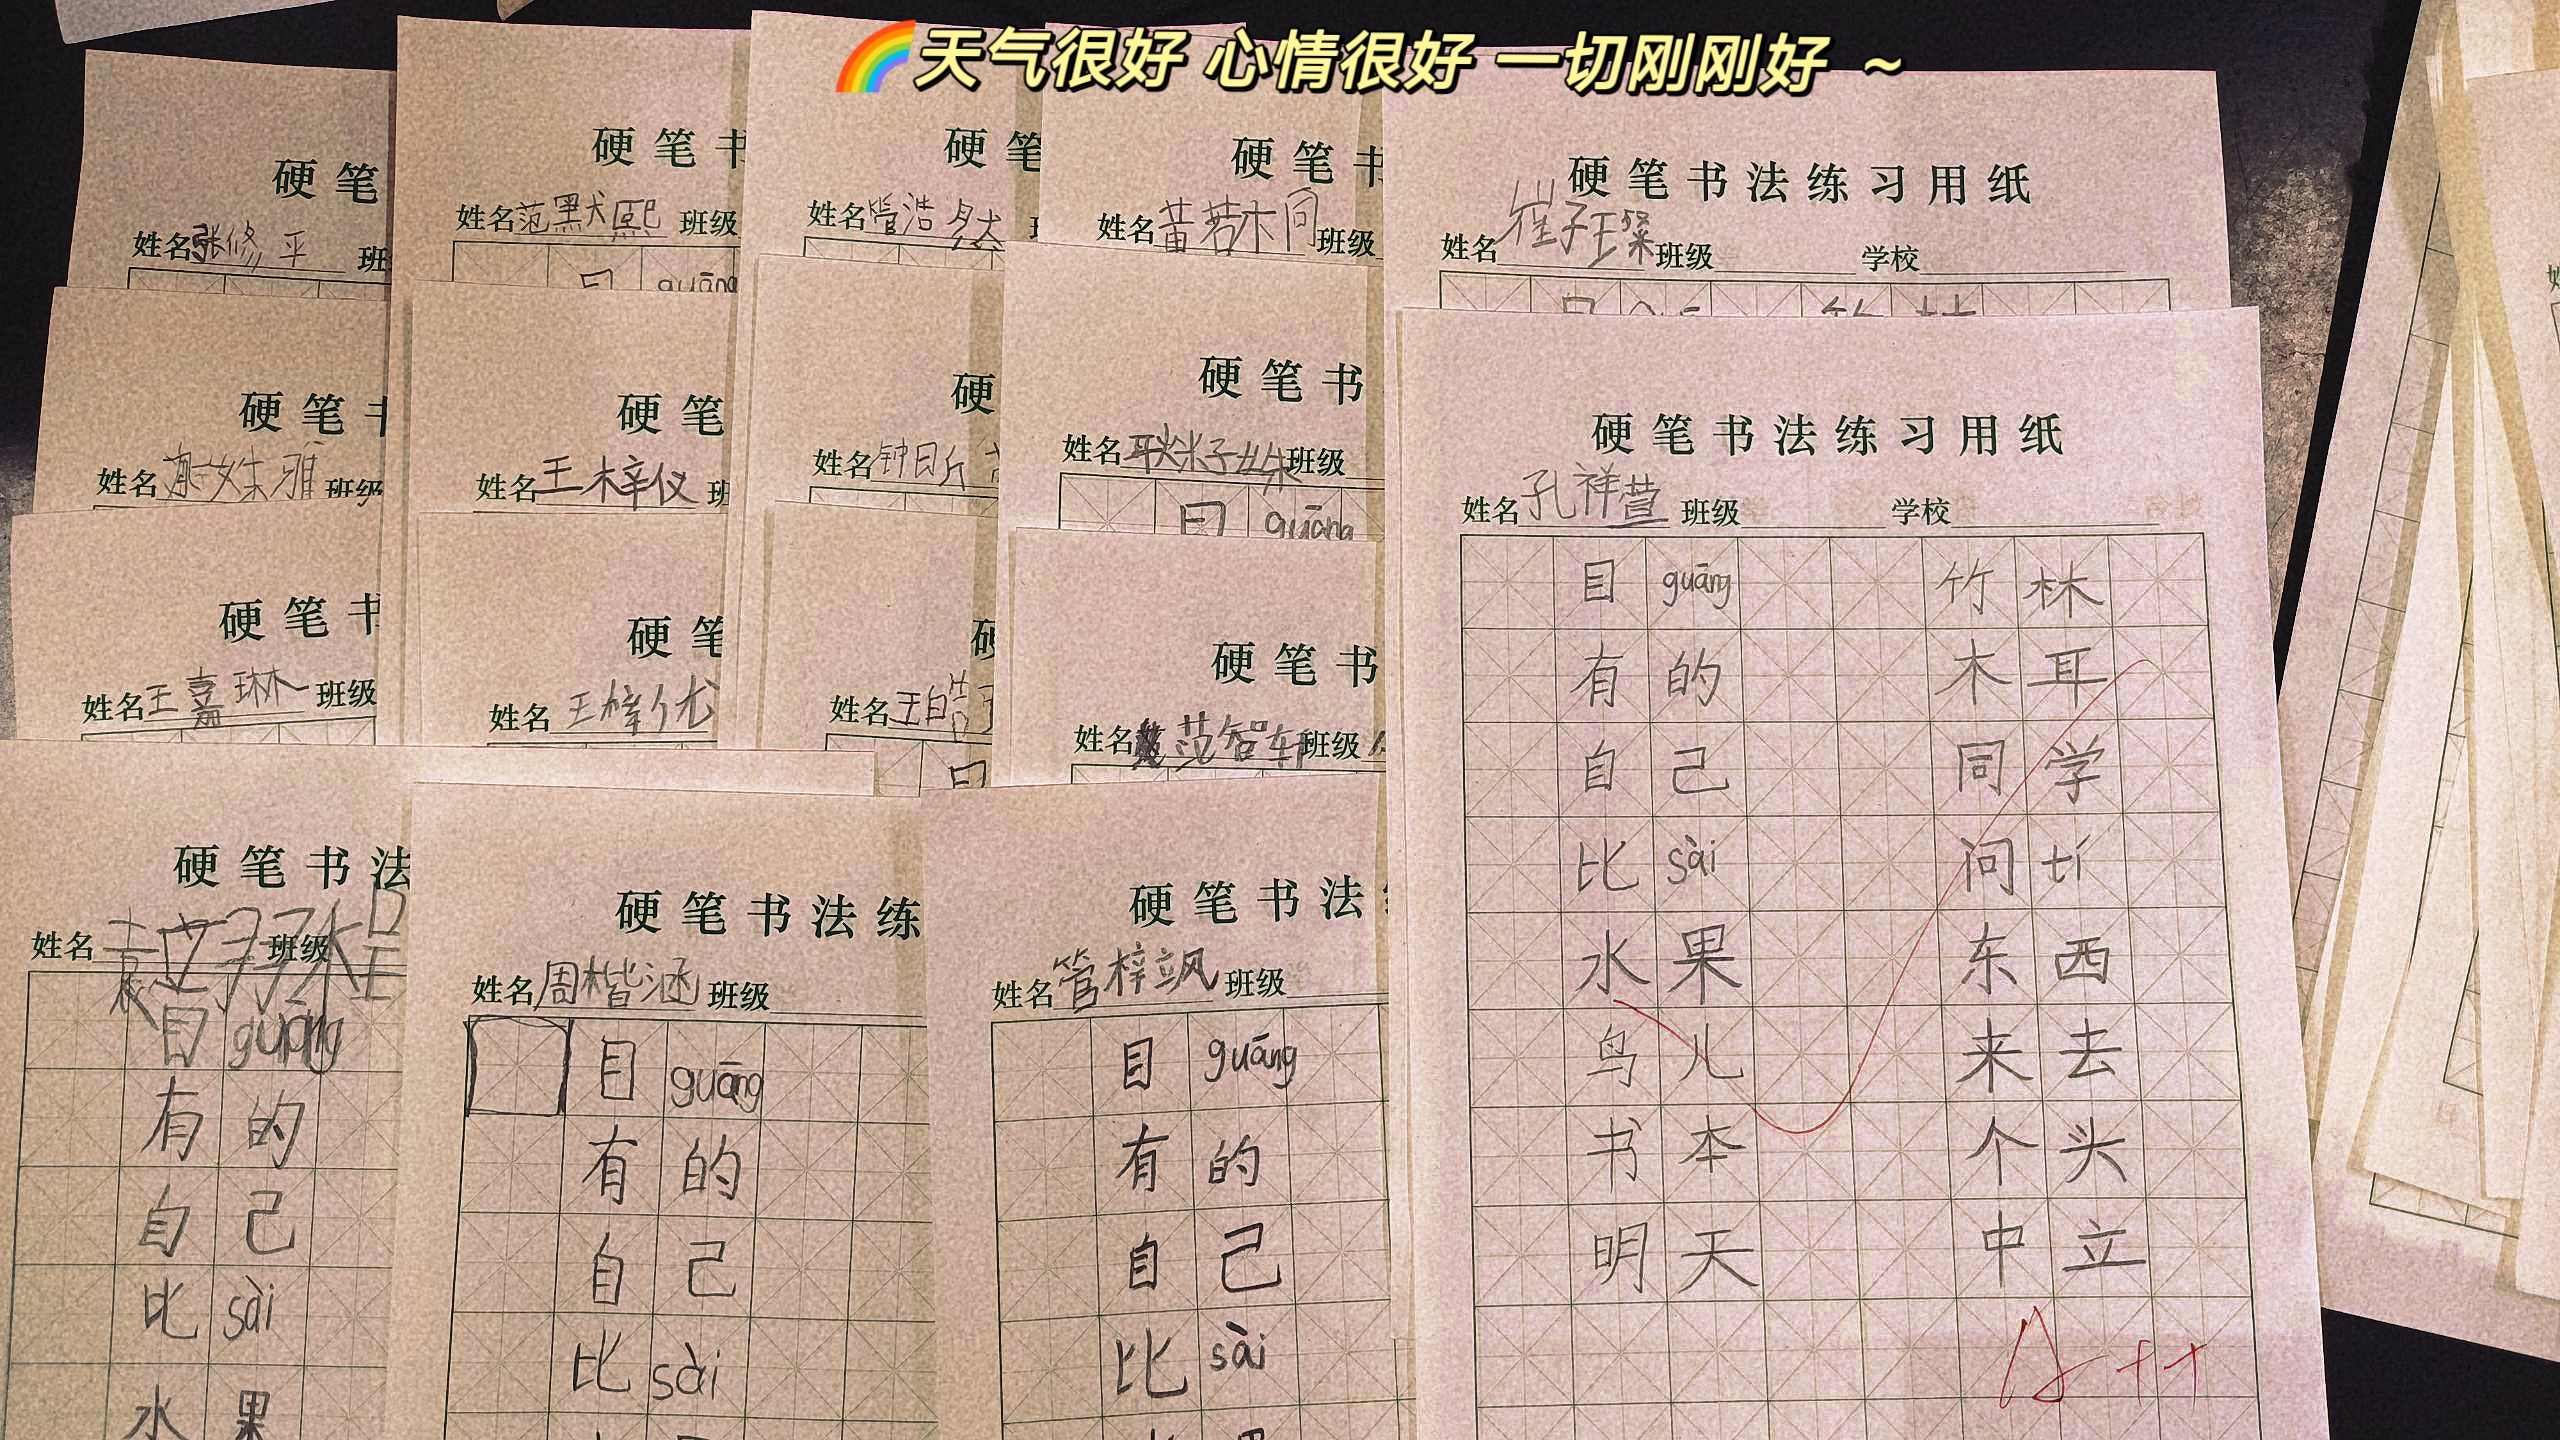 天气很好 心情很好 一切刚刚好 ~
硬笔
姓名张修平 班
硬笔书
姓名范默熙 班级
目 guāng
硬笔
姓名管浩然 班
硬笔书
姓名黄若桐 班级
硬笔书法练习用纸
姓名崔子璨 班级 学校
硬笔书
姓名 姝雅 班级
硬笔
姓名王梓仪 班
硬
姓名钟
硬笔书
姓名耿 子姝 班级
目 guāng
硬笔书
姓名王嘉琳 班级
硬笔
姓名王梓优
硬
姓名王皓
硬笔书
姓名范智轩 班级
硬笔书法
姓名袁 班级
目 guāng
有 的
自 己
比 sài
水 果
硬笔书法练
姓名周楷涵 班级
目 guāng
有 的
自 己
比 sài
硬笔书法
姓名管梓飒 班级
目 guāng
有 的
自 己
比 sài
硬笔书法练习用纸
姓名孔祥萱 班级 学校
目 guāng 竹 林
有 的 木 耳
自 己 同 学
比 sài 问 tí
水 果 东 西
鸟 儿 来 去
书 本 个 头
明 天 中 立
A++